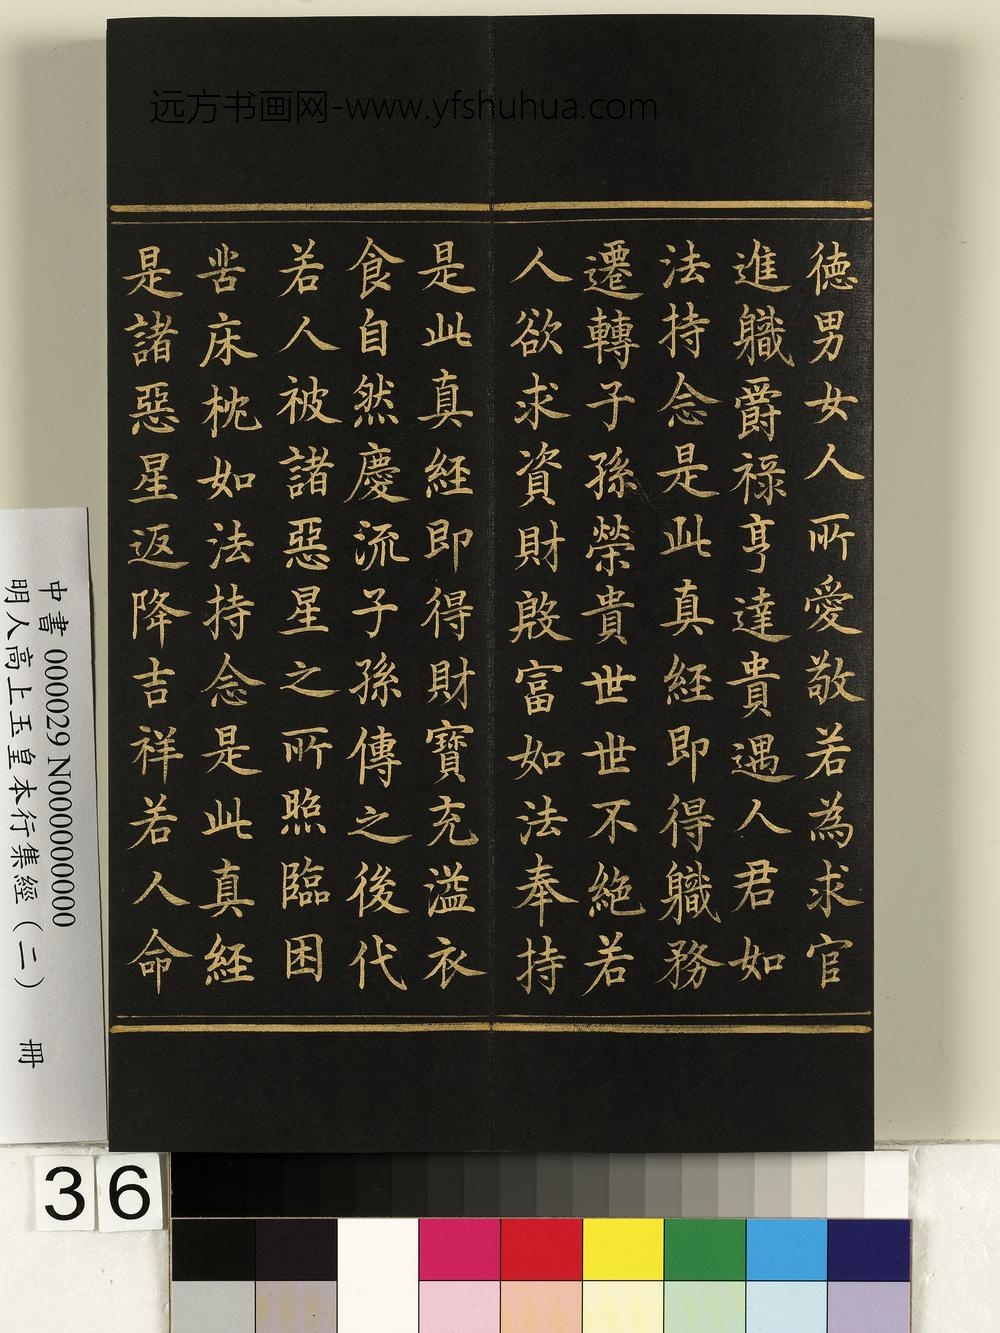 远方书画网-www.yfshuhua.com
徳男女人所愛敬若為求官
進職爵禄亨達貴遇人君如
法持念是此真經即得職務
遷轉子孫榮貴世世不絶若
人欲求資財殷富如法奉持
是此真經即得財寶充溢衣
食自然慶流子孫傳之後代
若人被諸惡星之所照臨困
苦床枕如法持念是此真經
是諸惡星返降吉祥若人命
中書 000029 N000000000
明人高上玉皇本行集經（二） 冊
36